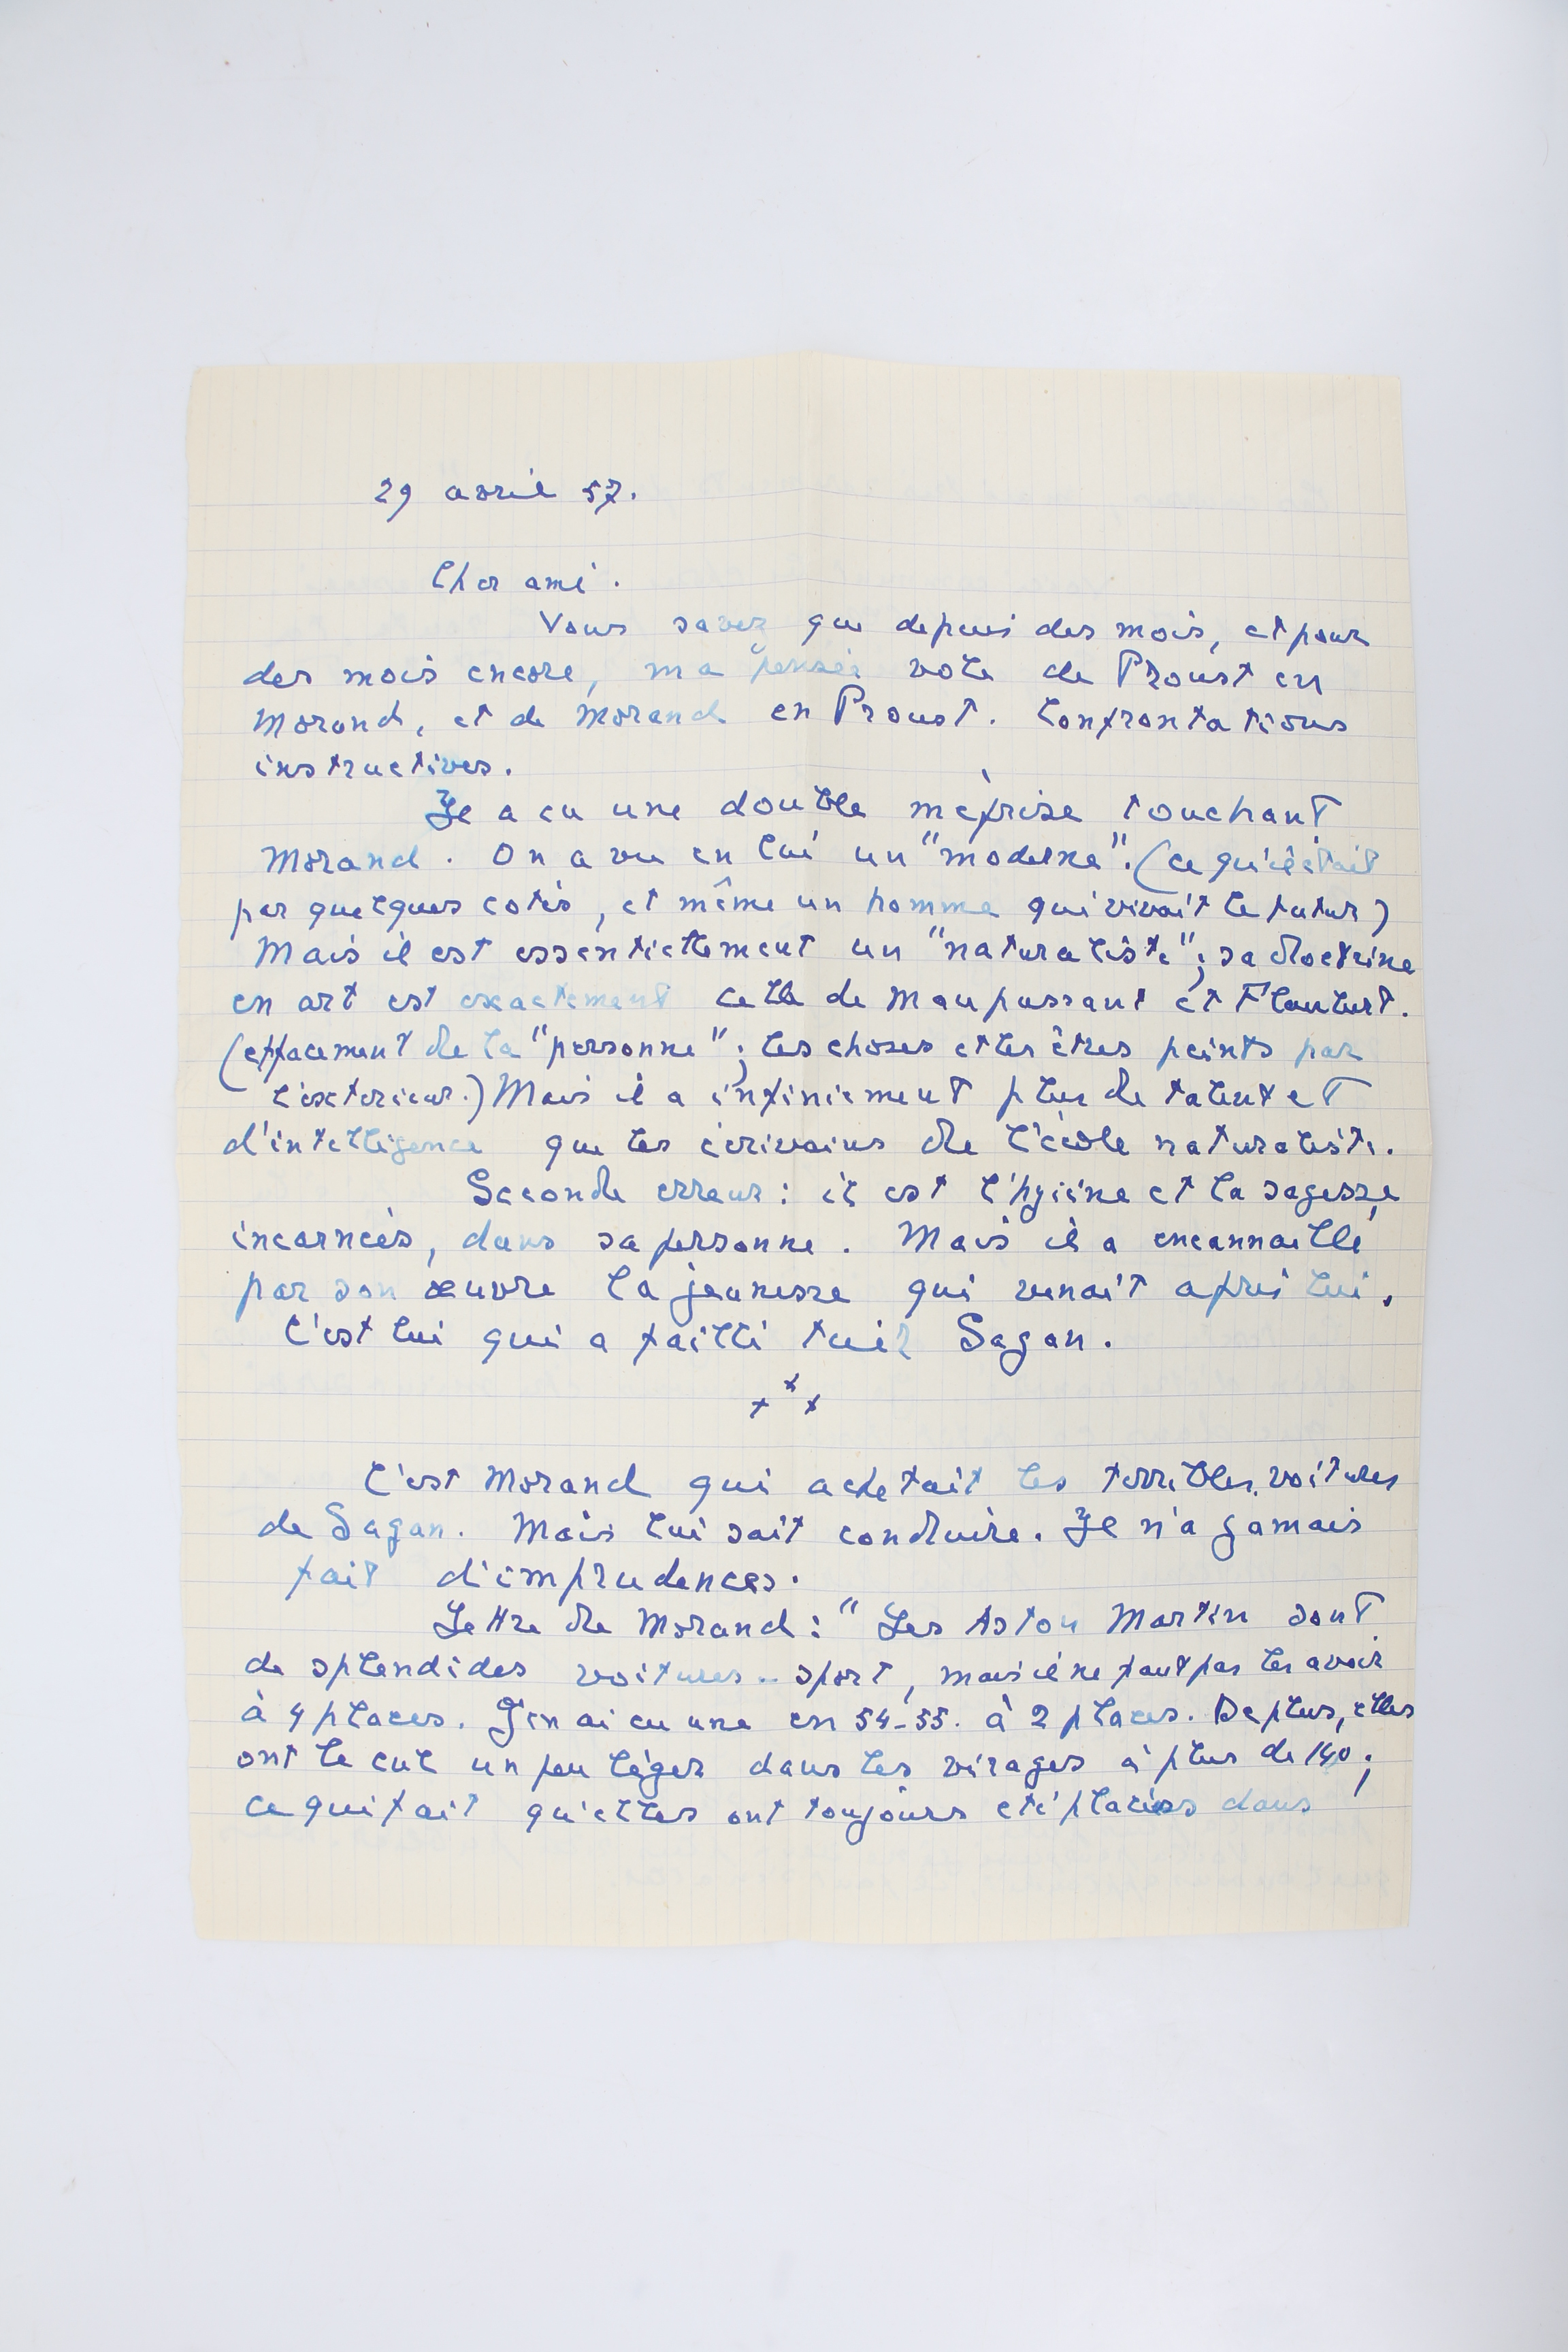 29 avril 57.
Cher ami.
Vous savez que depuis des mois, et pour
des mois encore, ma pensée vole de Proust en
Morand, et de Morand en Proust. Confrontations
instructives.
Il y a eu une double méprise touchant
Morand. On a vu en lui un "moderne". (ce qu'il était
par quelques cotés, et même un homme qui vivait le futur)
Mais il est essentiellement un "naturaliste"; sa doctrine
en art est exactement celle de Maupassant et Flaubert.
(effacement de la "personne"; les choses et les êtres peints par
l'exterieur.) Mais il a infiniement plus de talent et
d'intelligence que les écrivains de l'école naturaliste.
Seconde erreur : il est l'hygiène et la sagesse,
incarnées, dans sa personne. Mais il a encannaillé
par son œuvre la jeunesse qui venait après lui.
C'est lui qui a failli tuer Sagan.
x x x
C'est Morand qui achetait les terribles voitures
de Sagan. Mais lui sait conduire. Il n'a jamais
fait d'imprudences.
Lettre de Morand : "Les Aston Martin sont
de splendides voitures-sport, mais il ne faut pas les avoir
à 4 places. J'en ai eu une en 54-55. à 2 places. De plus, elles
ont le cul un peu léger dans les virages à plus de 140;
ce qui fait qu'elles ont toujours été placées dans